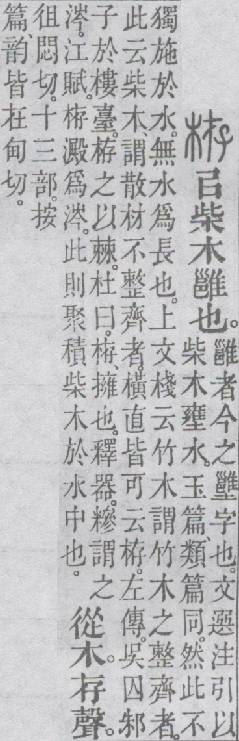 栫 㠯柴木雝也。
雝者今之壅字也。文選注引以
柴木壅水。玉篇、類篇同。然此不
獨施於水。無水爲長也。上文棧云竹木謂竹木之整齊者。
此云柴木、謂散材不整齊者。橫直皆可云栫。左傳。吳囚邾
子於樓臺。栫之以棘。杜曰。栫、擁也。釋器。糝謂之
涔。江賦。栫澱爲涔。此則聚積柴木於水中也。
從木。存聲。
徂悶切。十三部。按
篇、韵皆在甸切。